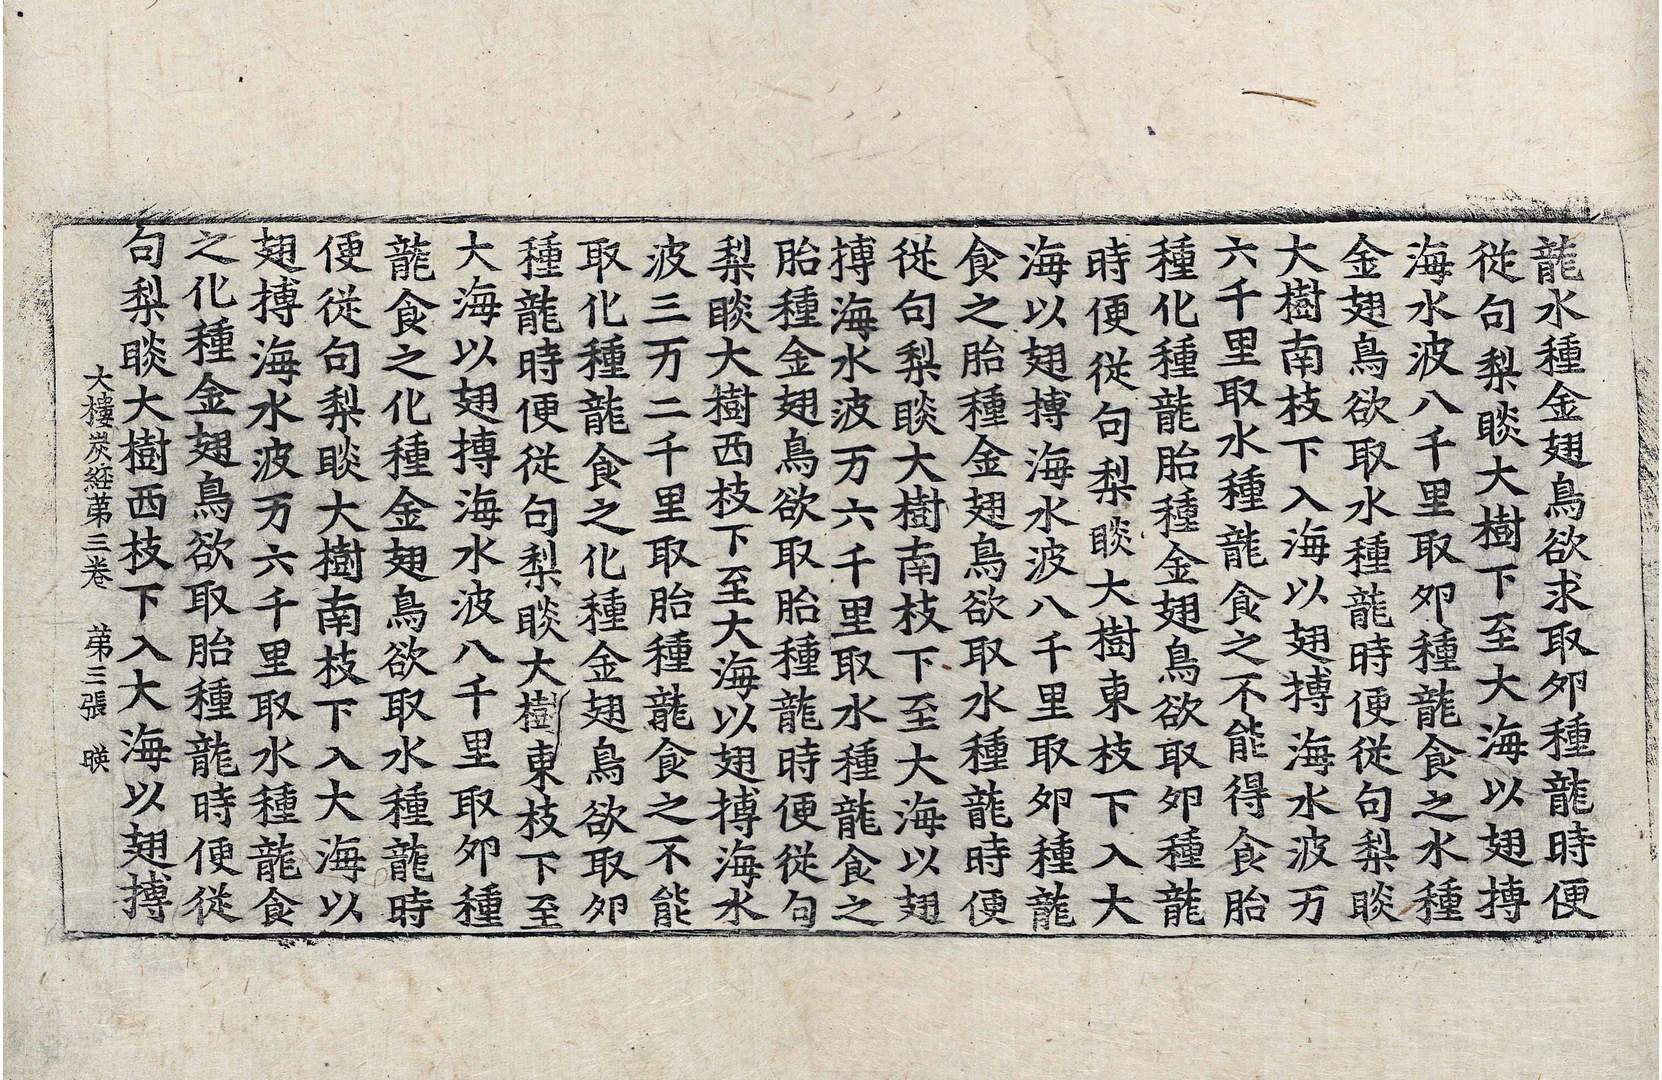 龍水種金翅鳥欲求取夘種龍時便
從句梨睒大樹下至大海以翅搏
海水波八千里取夘種龍食之水種
金翅鳥欲取水種龍時便從句梨睒
大樹南枝下入海以翅搏海水波万
六千里取水種龍食之不能得食胎
種化種龍胎種金翅鳥欲取夘種龍
時便從句梨睒大樹東枝下入大
海以翅搏海水波八千里取夘種龍
食之胎種金翅鳥欲取水種龍時便
從句梨睒大樹南枝下至大海以翅
搏海水波万六千里取水種龍食之
胎種金翅鳥欲取胎種龍時便從句
梨睒大樹西枝下至大海以翅搏海水
波三万二千里取胎種龍食之不能
取化種龍食之化種金翅鳥欲取夘
種龍時便從句梨睒大樹東枝下至
大海以翅搏海水波八千里取夘種
龍食之化種金翅鳥欲取水種龍時
便從句梨睒大樹南枝下入大海以
翅搏海水波万六千里取水種龍食
之化種金翅鳥欲取胎種龍時便從
句梨睒大樹西枝下入大海以翅搏
大樓炭經第三卷　第三張　暎